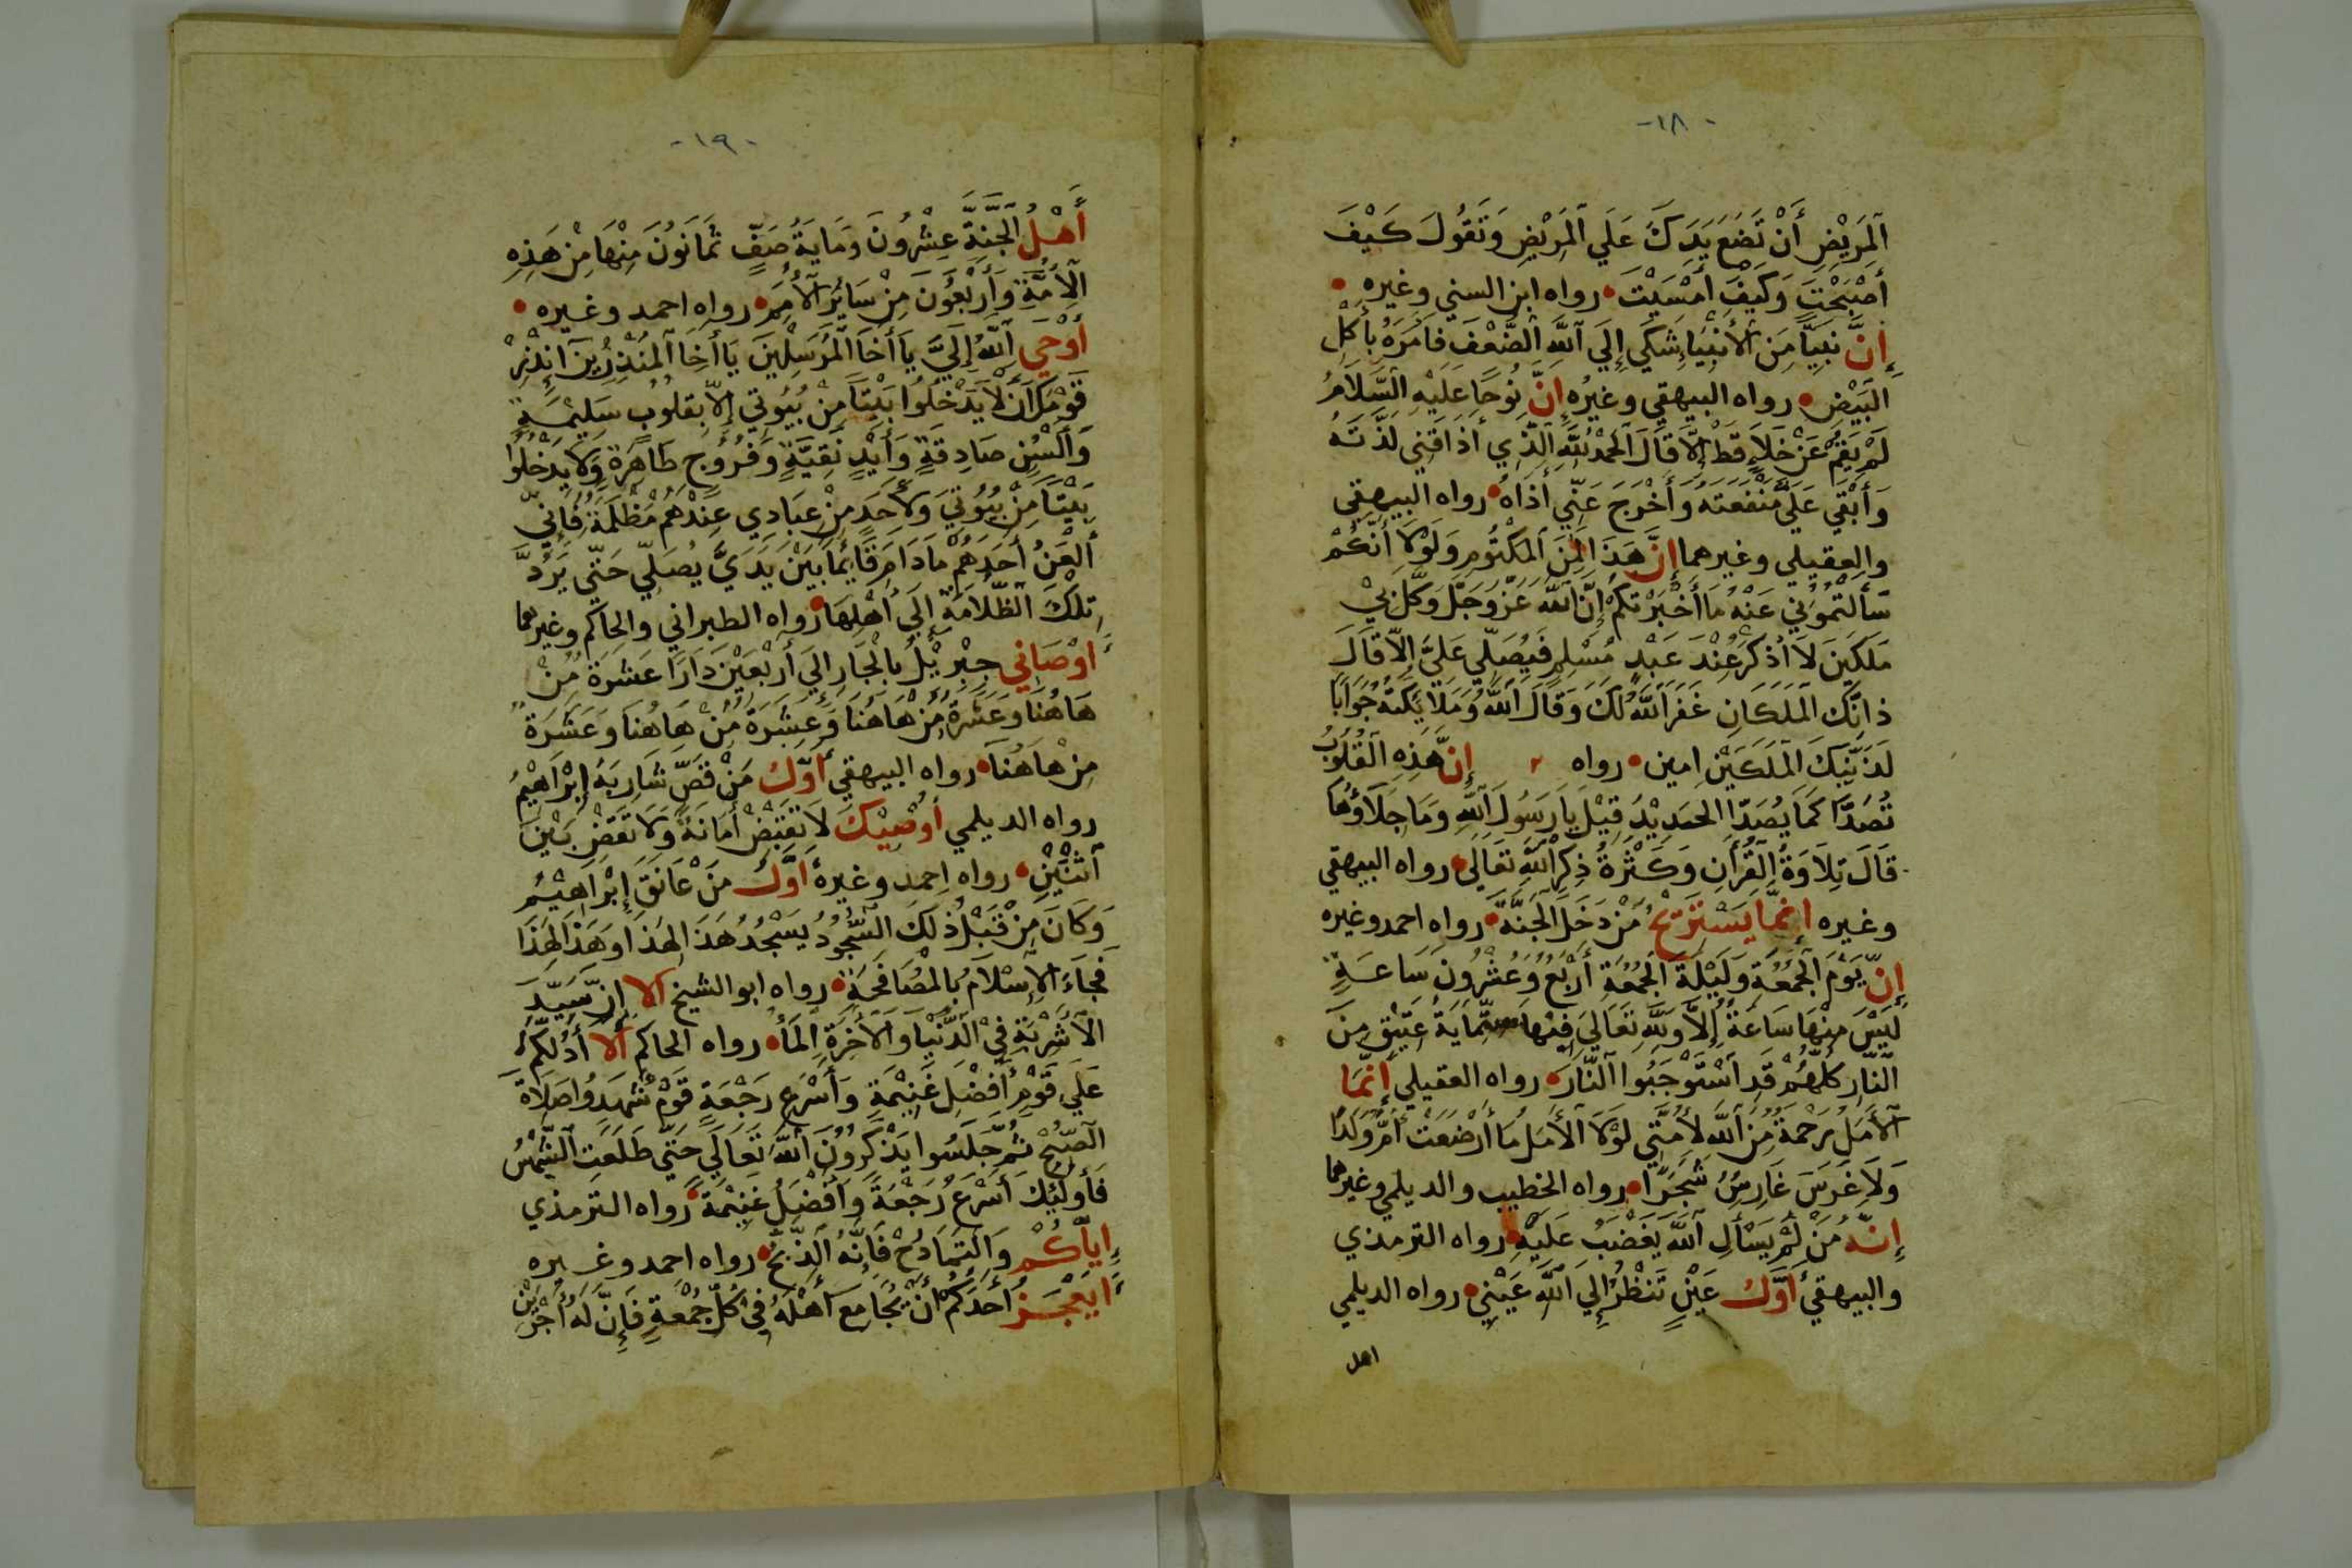 -١٨-
اَلمَرِيْضِ أَنْ تَضَعَ يَدَكَ عَلَي اَلمَرِيْضِ وَتَقُولَ كَيْفَ
أَصْبَحْتَ وَكَيْفَ أَمْسَيْتَ رواه ابن السني وغيره
إِنَّ نَبِيًّا مِنَ الأَنْبِيَا شَكَى إِلَي اَللهِ الضَّعْفَ فَأمَرَهُ بِأَكْلِ
البَيْضِ رواه البيهقي وغيرُه إِنَّ نُوحًا عَلَيْهِ السَّلاَمُ
لَمْ يَقُمْ عَنْ خَلَاءٍ قَطْ إِلَّا قَالَ الحَمْدُ لِلَّهِ اَلَّذِي أَذَاقَنِي لَذَّتَهُ
وَأَبْقَي عَلَيَّ مَنْفَعَتَهُ وَأَخْرَجَ عَنِّي أَذَاهُ رواه البيهقي
والعقيلي وغيرهما إِنَّ هَذَا لَمِنَ اَلمَكْتُومِ وَلَوْلاَ أَنَّكُمْ
سَأَلْتُمُوْنِي عَنْهُ مَا أَخْبَرْتُكُمْ إِنَّ اللَّهَ عَزَّ وَجَلَّ وَكَّلَ بِيْ
مَلَكَيْنِ لَا أُذْكَرُ عِنْدَ عَبْدٍ مُسْلِمٍ فَيُصَلِّي عَلَيَّ إِلَّا قَالَ
ذانِكَ اَلمَلَكَانِ غَفَرَ اَللَّهُ لَكَ وَقَالَ اَللَّهُ وَمَلَائِكَتُهُ جَوَابًا
لَذَيْنِكَ اَلمَلَكَيْنِ امين رواه إِنَّ هَذِهِ اَلقُلُوبُ
تُصَدَّا كَمَا يُصَدّا الحَدِيْدُ قِيْلَ يَا رَسُولَ اَللَّهِ وَمَا جَلَاؤُهَا
قَالَ تِلَاوَةُ اَلقُرْأَنِ وَكَثْرَةُ ذِكْرِ اَللَّهِ تَعَالِي رواه البيهقي
وغيره إِنَّمَا يَسْتَرِيْحُ مَنْ دَخَلَ اَلجَنَّةَ رواه احمد وغيره
إِنَّ يَوْمَ اَلجُمُعَةِ وَلَيْلَةَ اَلجُمُعَةِ أَرْبَعُ وَعُشْرُونَ سَاعَةٍ
لَيْسَ مِنْهَا سَاعَةُ إِلاَّ وَلِلَّهِ تَعَالَي فِيْهَا ستّمَايَةُ عَتِيْقٍ مِنَ
اَلنَّارِ كُلُّهُمْ قَدِ اسْتَوْجَبُوا اَلنَّارَ رواه العقيلي إِنَّمَا
اَلأَمَلُ رَحْمَةُ مِنَ اَللَّهِ لأُمَّتِي لَوْلاَ اَلأَمَلُ مَا أَرْضَعَتْ أُمُّ وَلَدًا
وَلَا غَرَسَ غَارِسُ شَجَرًا رواه الخطيب والديلمي وغيرهما
إِنَّهُ مَنْ لَمْ يَسْأَلِ اَللَّهَ يَغْضَبُ عَلَيْهِ رواه الترمذي
والبيهقي أَوَّلُ عَيْنٍ تَنْظُرُ إِلَي اَللَّهِ عَيْنِي رواه الديلمي
اهل
-١٩-
أَهْلُ اَلجَنَّةِ عِشْرُونَ وَمَايَةُ صَفٍّ ثَمَانُونَ مِنْهَا مِنْ هَذِهِ
اَلأُمَّةِ وَأَرْبَعُونَ مِنْ سَائِرِ اَلأُمَمِ رواه احمد وغيره
أَوْحَي اَللَّهُ إِلَيَّ يَا أَخَا اَلمُرْسَلِيْنَ يَا أَخَا اَلمُنْذِرِيْنَ أَنْذِرْ
قَوْمَكَ أَنْ لَا يَدْخُلُوا بَيْتًا مِنْ بُيُوتِي إِلَّا بِقُلُوبٍ سَلِيْمَةٍ
وَأَلْسُنٍ صَادِقَةٍ وَأَيْدٍ نَقِيَّةٍ وَفُرُوجٍ طَاهِرَةٍ وَلَا يَدْخُلُوا
بَيْتًا مِنْ بُيُوتِيَ وَلأَحَدٍ مِنْ عِبَادِي عِنْدَهُمْ مُظْلَمَةُ فَإِنِّي
أَلْعَنُ أَحَدَهُمْ مَا دَامَ قَائِمًا بَيْنَ يَدَيَّ يُصَلِّي حَتَّى يَرُدَّ
تِلْكَ اَلظُّلَامَةَ إِلَي أَهْلِهَا رواه الطبراني والحاكم وغيرهما
أَوْصَانِي جِبْرِيْلُ بِالْجَارِ إِلَي أَرْبَعِيْنَ دَارًا عَشَرَةُ مِنْ
هَاهُنَا وَعَشَرَةُ مِنْ هَاهُنَا وَعَشَرَةُ مِنْ هَاهُنَا وَعَشَرَةُ
مِنْ هَاهُنَا رواه البيهقي أَوَّلُ مَنْ قَصَّ شَارِبَهُ إِبْرَاهِيْمُ
رواه الديلمي أُوْصِيْكَ لَا تَقْبَضْ أَمَانَةً وَلَا تَقْضِ بَيْنَ
اَثْنَيْنِ رواه احمد وغيره أَوَّلُ مَنْ عَانَقَ إِبْرَاهِيْمُ
وَكَانَ مِنْ قَبْلِ ذَلِكَ السُّجُوْدُ يَسْجُدُ هَذَا لِهَذَا وَهَذَا لِهَذَا
فَجَاءَ اَلإِسْلاَمُ بِالمُصَافَحَةِ رواه ابو الشيخ ألا إِنَّ سَيِّدَ
الأَشْرِبَةِ فِيْ اَلدُّنْيَا وَالأَخِرَةِ اَلمَاُ رواه الحاكم أَلَا أَدُلُّكُمْ
عَلَي قَوْمٍ أَفْضَلَ غَنِيْمَةٍ وَأَسْرَعِ رَجْعَةٍ قَوْمُ شَهِدُوا صَلاَةَ
اَلصُّبْحِ ثُمَّ جَلَسُوا يَذْكُرُوُنَ اَللَّهَ تَعَالَي حَتَّى طَلَعَتِ اَلشَّمْسُ
فَأُولَئِكَ أَسْرَعُ رَجْعَةً وَأَفْضَلُ غَنِيْمَةً رواه الترمذي
إِيَّاكُمْ وَاَلتَّمَادُحْ فَإِنَّهُ اَلذَّبْحُ رواه احمد وغيره
أَيَعْجَزُ أَحَدُكُمْ أَنْ يُجَامِعَ أَهْلَهُ فِي كُلِّ جُمْعَةٍ فَإِنَّ لَهُ أَجْرَيْنِ